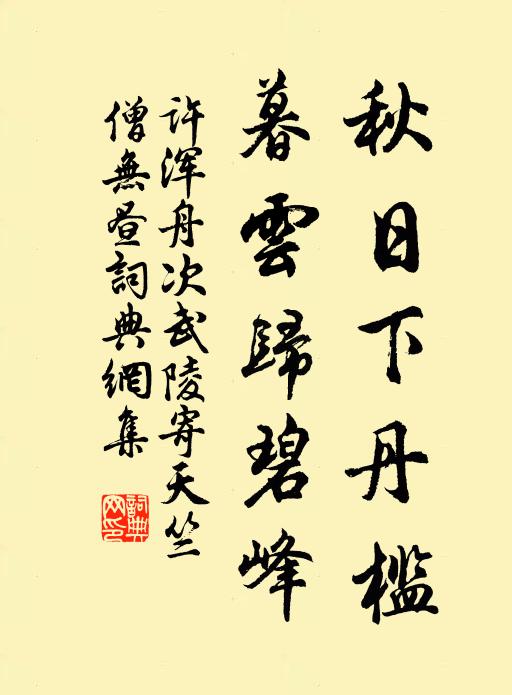 秋日下丹檻
暮雲歸碧峰
許渾舟次武陵寄天竺
僧無晝詞典網集
詞典網印